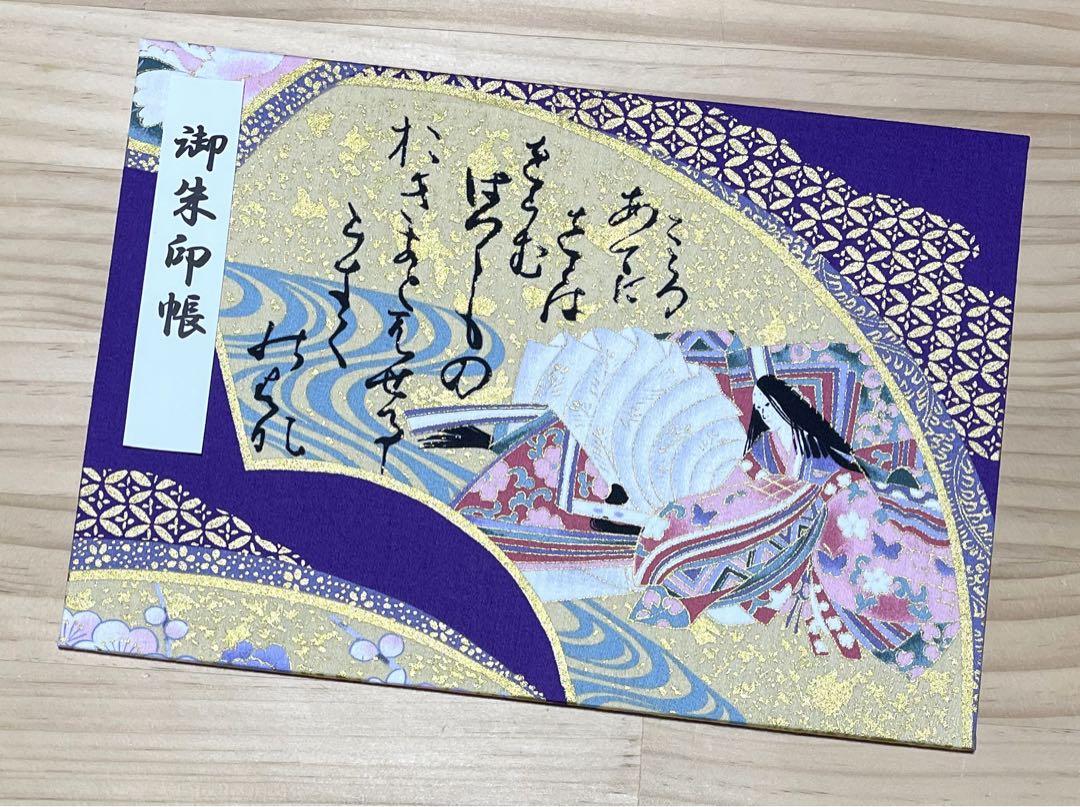 こゝろ
あてに
をらは
をらむ
はつしもの
おきまとはせる
しらきく
のはな
御朱印帳